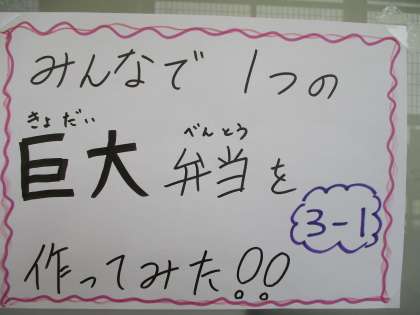 みんなで1つの
きょだい べんとう
巨大弁当を
3-1
作ってみた!!